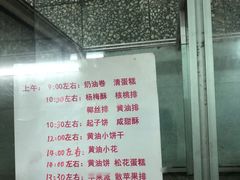 上午：9:00左右：奶油卷 清蛋糕
10:00左右：杨梅酥 核桃排
椰丝排 黄油排
10:30左右：起子饼 咸甜酥
12:00左右：黄油小饼干
14:00左右：黄油小花
14:00左右：黄油饼 松花蛋糕
13:30左右：苹果派 散苹果排